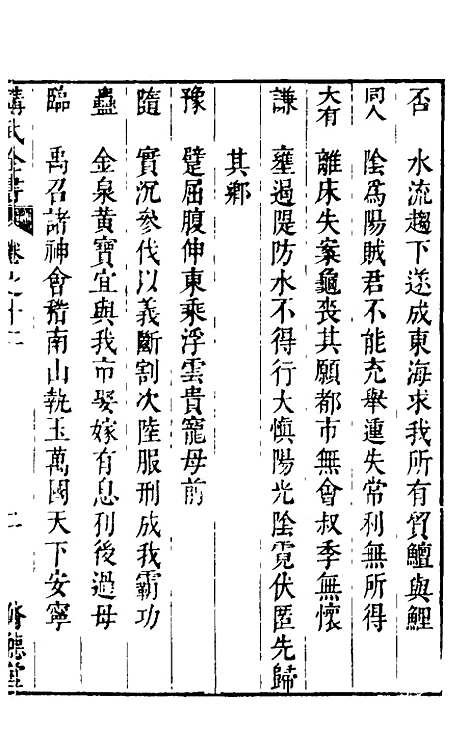 否　水流趨下遂成東海求我所有買鱣與鯉
同人　陰爲陽賊君不能充舉運失常利無所得
大有　離床失案龜喪其願都市無會叔季無懷
謙　壅遏隄防水不得行大愼陽光陰霓伏匿先歸
其鄉
豫　蹇屈腹伸東乘浮雲貴寵母前
隨　實沉參伐以義斷割次陸服刑成我霸功
蠱　金泉黃寶宜與我市娶嫁有息利後過母
臨　禹召諸神會稽南山執玉萬國天下安寧
講武全書 卷之十二 二